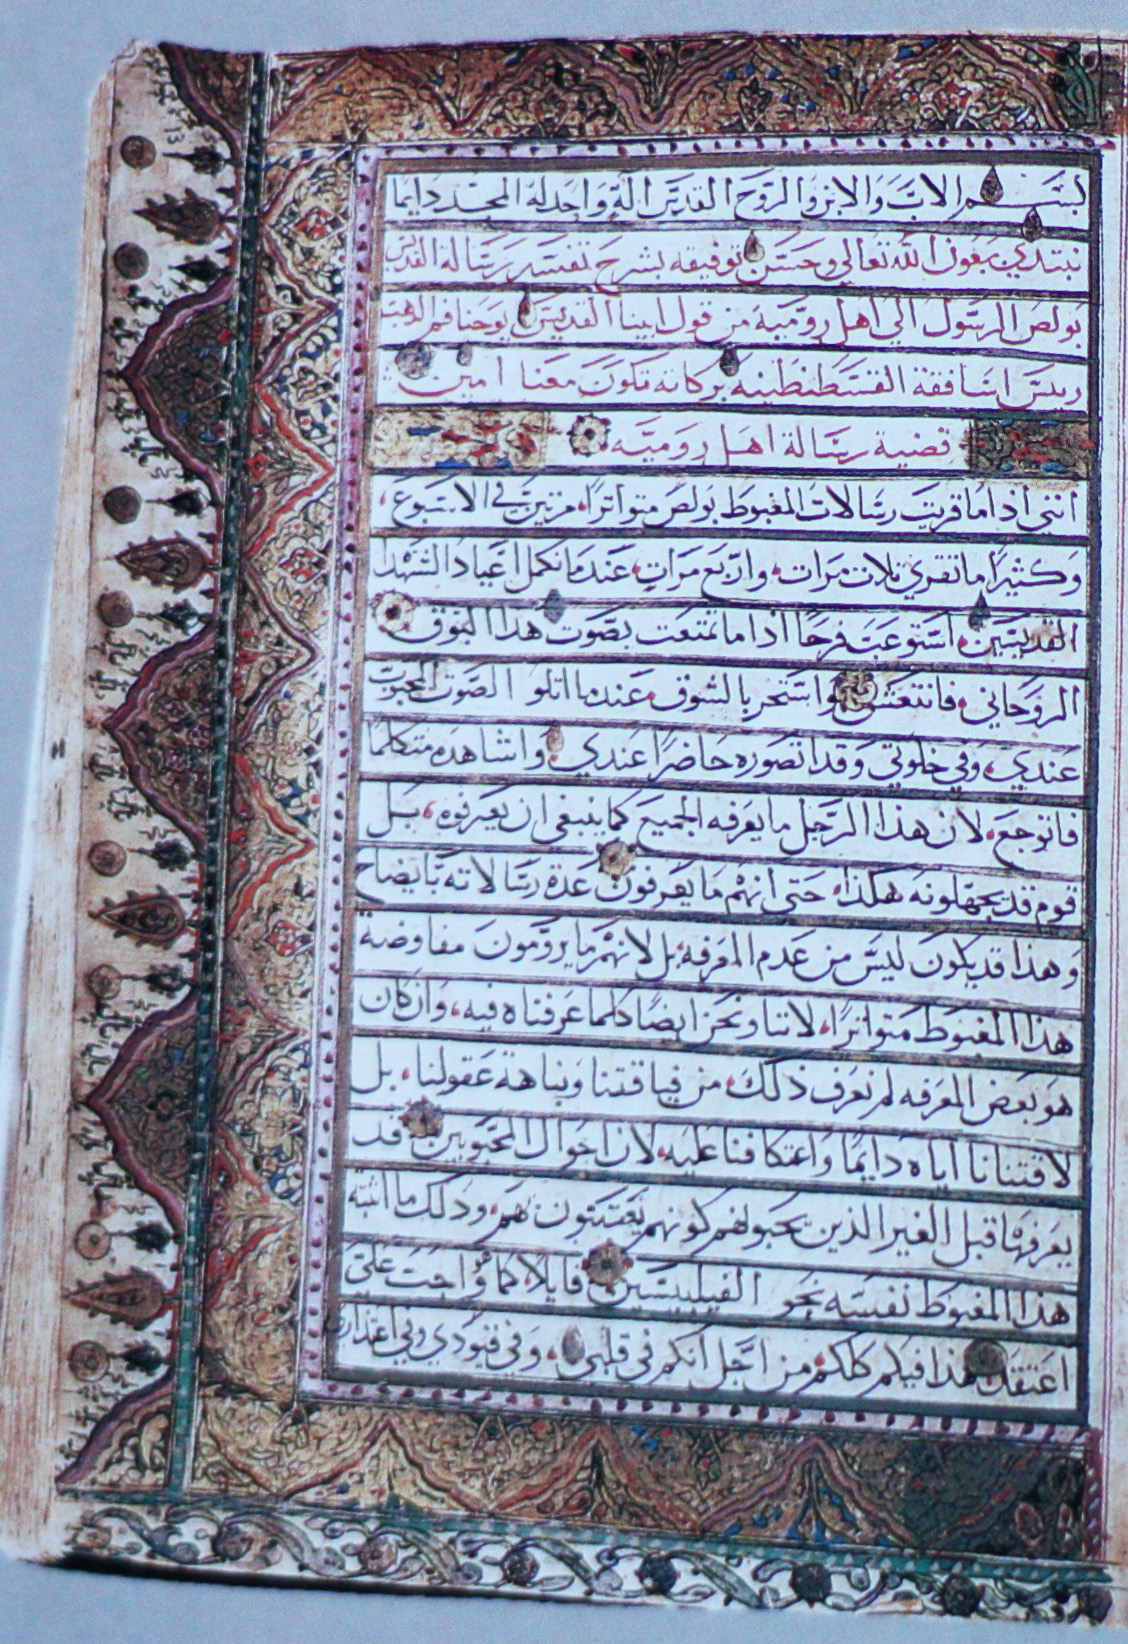 بسم الاب والابن والروح القدس اله واحد له المجد دايما
نبتدي بعون الله تعالي وحسن توفيقه بشرح تفسير رسالة القديس
بولص الرسول الي اهل روميه من قول ابينا القديس يوحنا فم الدهب
رييس اساقفة القسطنطنيه بركاته تكون معنا امين
قضية رسالة اهل روميه
انني اذا ما قريت رسالات المغبوط بولص متواترا، مرتين في الاسبوع،
وكثيرا ما تقري ثلات مرات، واربع مرات، عندما نكمل اعياد الشهدا
القديسين، استوعبت فرحا اذا ما تمتعت بصوت هذا البوق
الروحاني، فانتعش، واستحر بالشوق، عندما اتلوا الصوت المحبوب
عندي، وفي خلوتي وقد اتصوره حاضرا عندي، واشاهده متكلما
فاتوجع، لان هذا الرجل ما يعرفه الجميع كما ينبغي ان يعرفوه، بل
قوم قد يجهلونه هكذا، حتى انهم ما يعرفون عدة رسالاته بايضاح
وهذا قد يكون ليس من عدم المعرفه، بل لانهم ما يرومون مفاوضة
هذا المغبوط متواترا، لاننا ونحن ايضا كلما عرفناه فيه، وان كان
هو بعض المعرفه لم نعرف ذلك، من لياقتنا ونباهة عقولنا، بل
لاقتنانا اياه دايما واعتكافنا عليه، لان احوال المحبوبين قد
يعرفها قبل الغير الذين يحبوهم كونهم يعتنون بهم، وذلك ما اثبته
هذا المغبوط نفسه نحو الفيلبيسين قايلا، كما واجب علي
اعتقد هذا فيكم كلكم، من اجل انكم في قلبي، وفي قيودي وفي اعتذاري